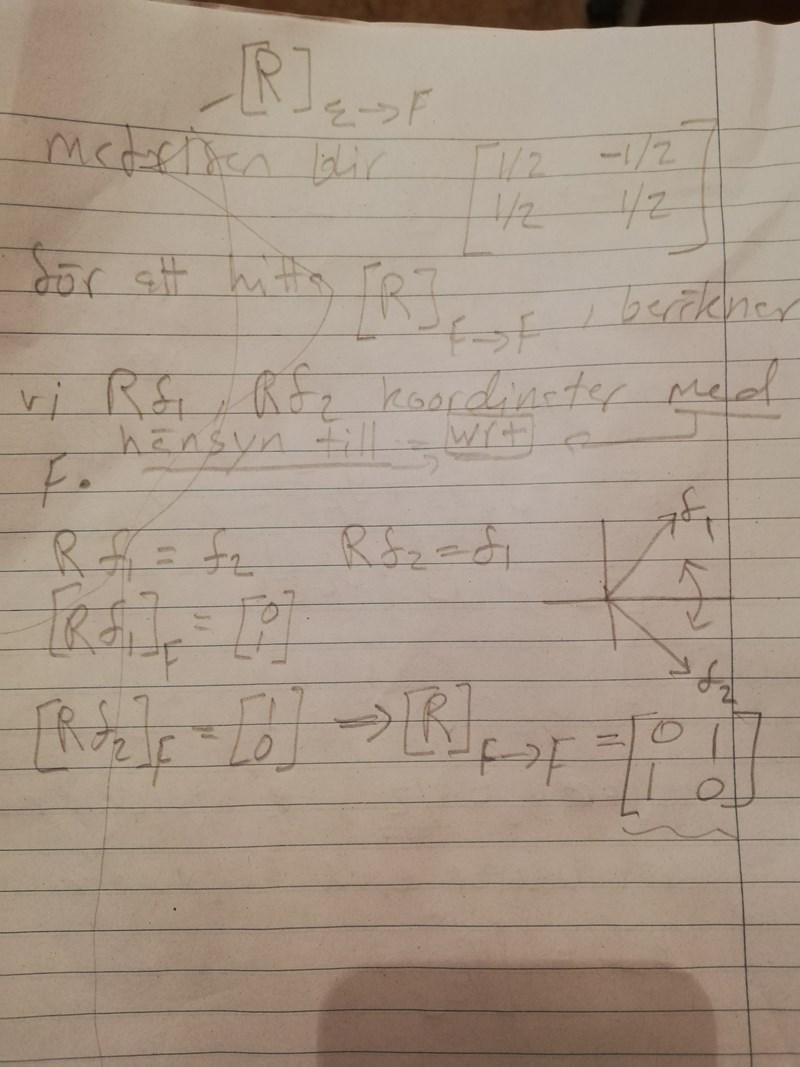 [R] ε→F
blir [1/2 -1/2
1/2 1/2]
för att hitta [R] F→F, beräknar
vi Rf₁, Rf₂ koordinater med
hänsyn till = wrt
F.
Rf₁ = f₂ Rf₂ = f₁
f₁
[Rf₁]F = [0
1]
f₂
[Rf₂]F = [1
0] ⇒ [R] F→F = [0 1
1 0]